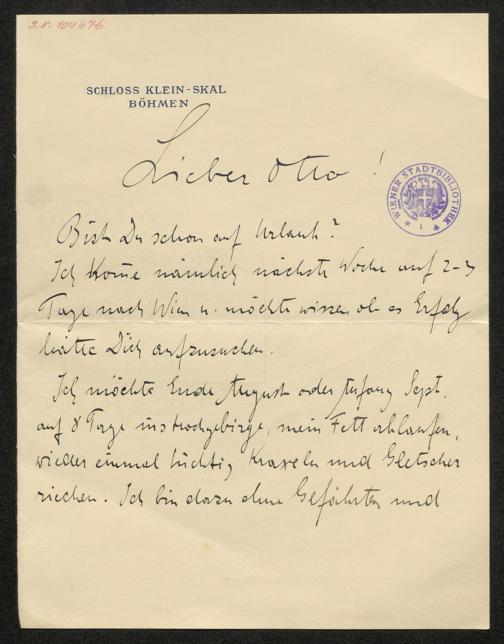 J.N. 104676
SCHLOSS KLEIN-SKAL
BÖHMEN
Lieber Otto!
WIENER STADTBIBLIOTHEK
1
Bist Du schon auf Urlaub?
Ich kom̄e nämlich nächste Woche auf 2-3
Tage nach Wien u. möchte wissen ob es Erfolg
hätte Dich aufzusuchen.
Ich möchte Ende August oder Anfang Sept.
auf 8 Tage ins Hochgebirge, mein Fett ablaufen,
wieder einmal tüchtig kraxeln und Gletscher
riechen. Ich bin dazu ohne Gefährten und